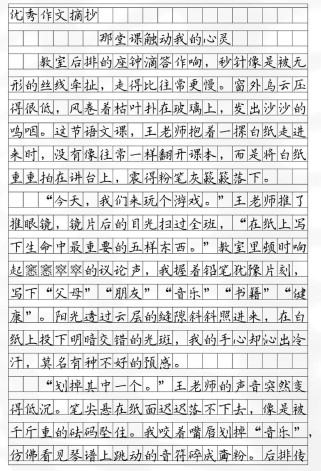 优秀作文摘抄
那堂课触动我的心灵
教室后排的座钟滴答作响，秒针像是被无
形的丝线牵扯，走得比往常更慢。窗外乌云压
得很低，风卷着枯叶扑在玻璃上，发出沙沙的
呜咽。这节语文课，王老师抱着一摞白纸走进
来时，没有像往常一样翻开课本，而是将白纸
重重拍在讲台上，震得粉笔灰簌簌落下。
“今天，我们来玩个游戏。”王老师推了
推眼镜，镜片后的目光扫过全班，“在纸上写
下生命中最重要的五样东西。”教室里顿时响
起窸窸窣窣的议论声，我握着铅笔犹豫片刻，
写下“父母”“朋友”“音乐”“书籍”“健
康”。阳光透过云层的缝隙斜斜照进来，在白
纸上投下明暗交错的光斑，我的手心却沁出冷
汗，莫名有种不好的预感。
“划掉其中一个。”王老师的声音突然变
得低沉。笔尖悬在纸面迟迟落不下去，像是被
千斤重的砝码坠住。我咬着嘴唇划掉“音乐”，
仿佛看见琴谱上跳动的音符碎成齑粉。后排传